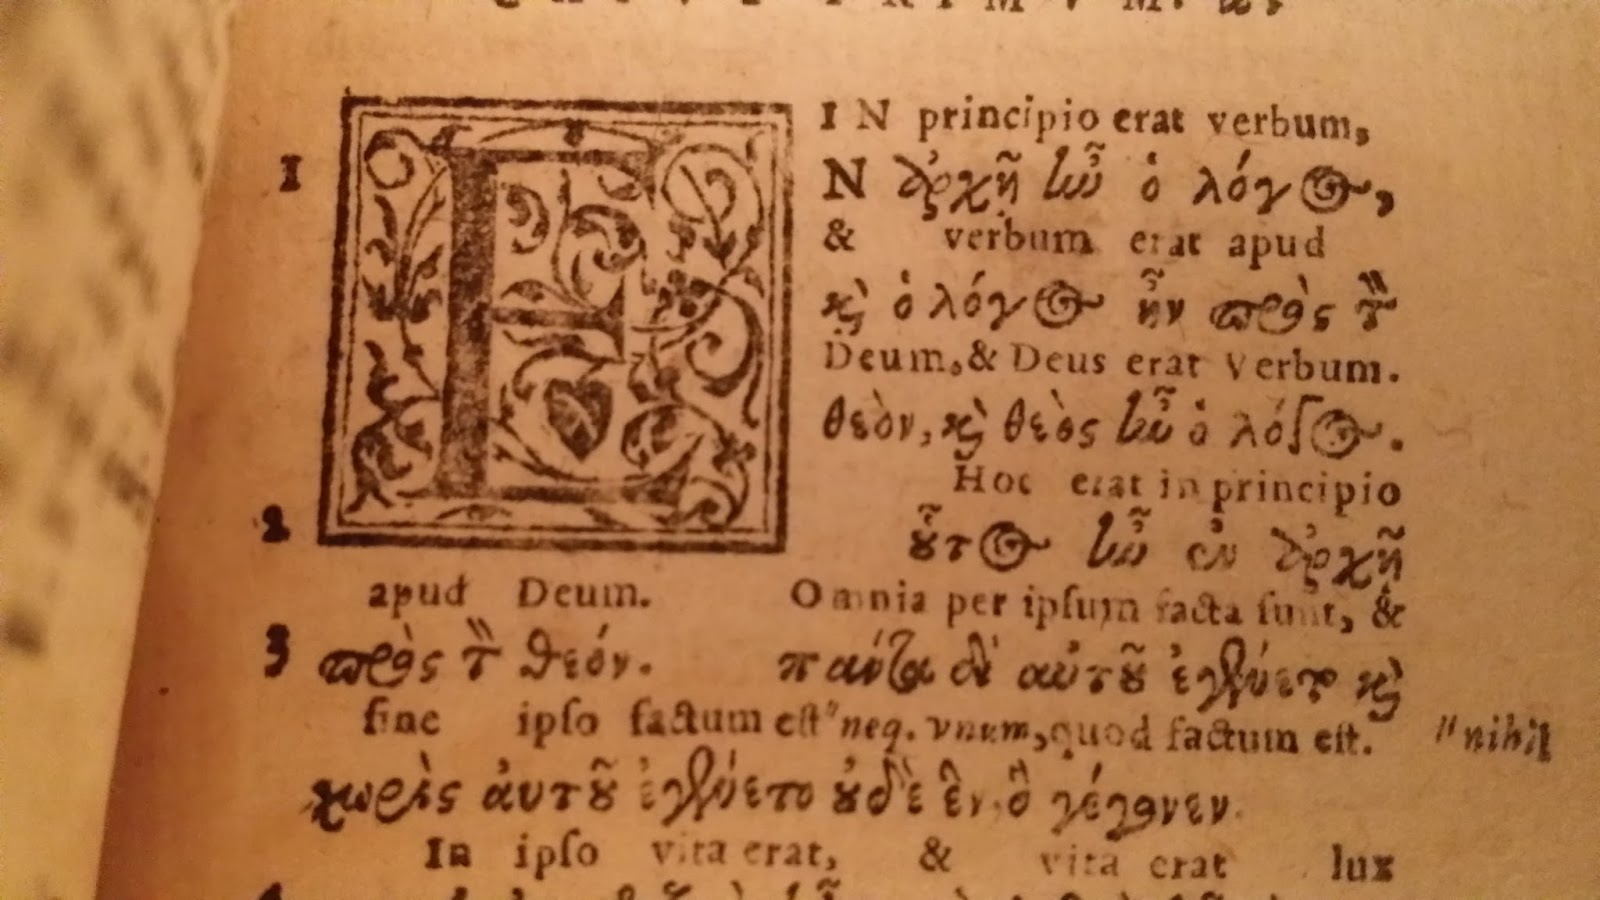 IN principio erat verbum,
1 EN ἀρχῇ ἦν ὁ λόγος,
& verbum erat apud
καὶ ὁ λόγος ἦν πρὸς τὸν
Deum, & Deus erat Verbum.
θεὸν, καὶ θεὸς ἦν ὁ λόγος.
Hoc erat in principio
2 οὗτος ἦν ἐν ἀρχῇ
apud Deum. Omnia per ipsum facta sunt, &
3 πρὸς τὸν θεόν. πάντα δι' αὐτοῦ ἐγένετο καὶ
sine ipso factum est "neq. vnum, quod factum est. "nihil
χωρὶς αὐτοῦ ἐγένετο οὐδὲ ἓν, ὃ γέγονεν.
In ipso vita erat, & vita erat lux